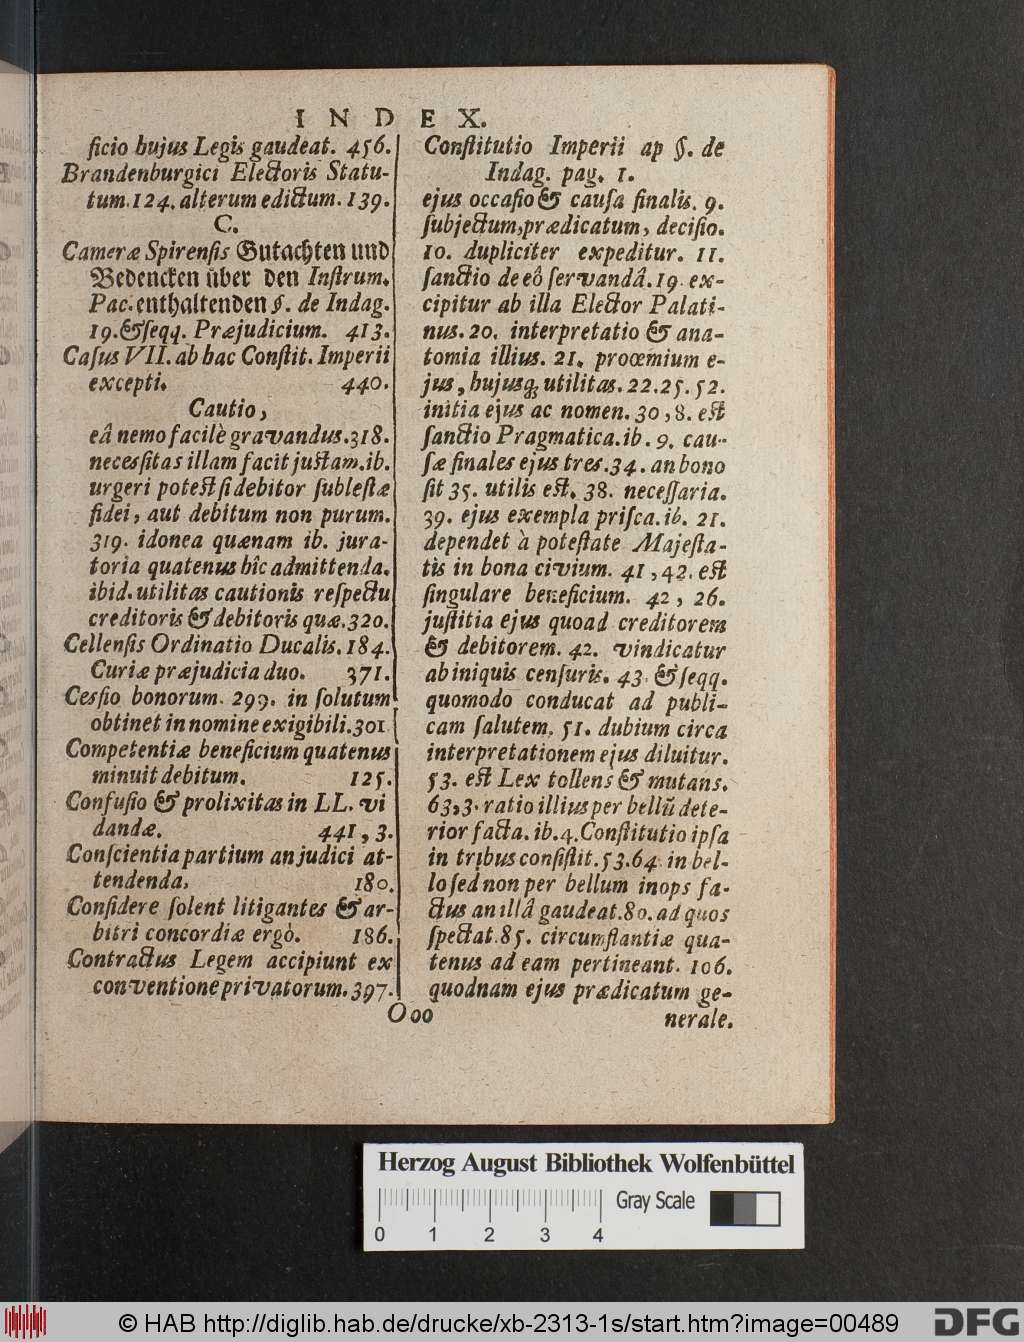 INDEX.
ficio hujus Legis gaudeat. 456.
Brandenburgici Electoris Statu-
tum. 124. alterum edictum. 139.
C.
Cameræ Spirensis Gutachten und
Bedencken über den Instrum.
Pac. enthaltenden §. de Indag.
19. & seqq. Præjudicium. 413.
Casus VII. ab hac Constit. Imperii
excepti. 440.
Cautio,
eâ nemo facilè gravandus. 318.
necessitas illam facit justam. ib.
urgeri potest si debitor sublestæ
fidei, aut debitum non purum.
319. idonea quænam ib. jura-
toria quatenus hîc admittenda.
ibid. utilitas cautionis respectu
creditoris & debitoris quæ. 320.
Cellensis Ordinatio Ducalis. 184.
Curiæ præjudicia duo. 371.
Cessio bonorum. 299. in solutum
obtinet in nomine exigibili. 301
Competentiæ beneficium quatenus
minuit debitum. 125.
Confusio & prolixitas in LL. vi
dandæ. 441, 3.
Conscientia partium an judici at-
tendenda, 180.
Considere solent litigantes & ar-
bitri concordiæ ergò. 186.
Contractus Legem accipiunt ex
conventione privatorum. 397.
Ooo
Constitutio Imperii ap §. de
Indag. pag. 1.
ejus occasio & causa finalis. 9.
subjectum, prædicatum, decisio.
10. dupliciter expeditur. 11.
sanctio de eô servandâ. 19. ex-
cipitur ab illa Elector Palati-
nus. 20. interpretatio & ana-
tomia illius. 21. proœmium e-
jus, hujusq; utilitas. 22. 25. 52.
initia ejus ac nomen. 30, 8. est
sanctio Pragmatica. ib. 9. cau-
sæ finales ejus tres. 34. an bono
sit 35. utilis est. 38. necessaria.
39. ejus exempla prisca. ib. 21.
dependet à potestate Majesta-
tis in bona civium. 41, 42. est
singulare beneficium. 42, 26.
justitia ejus quoad creditorem
& debitorem. 42. vindicatur
ab iniquis censuris. 43. & seqq.
quomodo conducat ad publi-
cam salutem. 51. dubium circa
interpretationem ejus diluitur.
53. est Lex tollens & mutans.
63, 3. ratio illius per bellũ dete-
rior facta. ib. 4. Constitutio ipsa
in tribus consistit. 53. 64. in bel-
lo sed non per bellum inops fa-
ctus an illâ gaudeat. 80. ad quos
spectat. 85. circumstantiæ qua-
tenus ad eam pertineant. 106.
quodnam ejus prædicatum ge-
nerale.
Herzog August Bibliothek Wolfenbüttel
Gray Scale
0 1 2 3 4
© HAB http://diglib.hab.de/drucke/xb-2313-1s/start.htm?image=00489
DFG